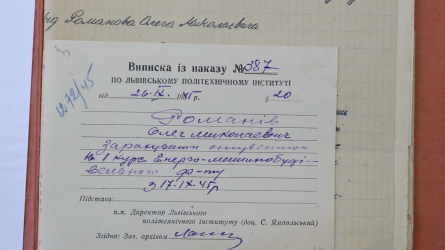 від Романова Олега Миколаевича
1272/45
Виписка із наказу № 387
ПО ЛЬВІВСЬКОМУ ПОЛІТЕХНІЧНОМУ ІНСТИТУТІ
від 26.IX. 1945р. § 20
Романів
Олег Миколаевич
Зарахувати студентом
на I курс Енерго-машинобуді-
вельного ф-ту
з 17.IX.45р.
Підстава:
п.п. Директор Львівського
політехнічного інституту (доц. С. Ямпольський)
Згідно: Зав. архівом